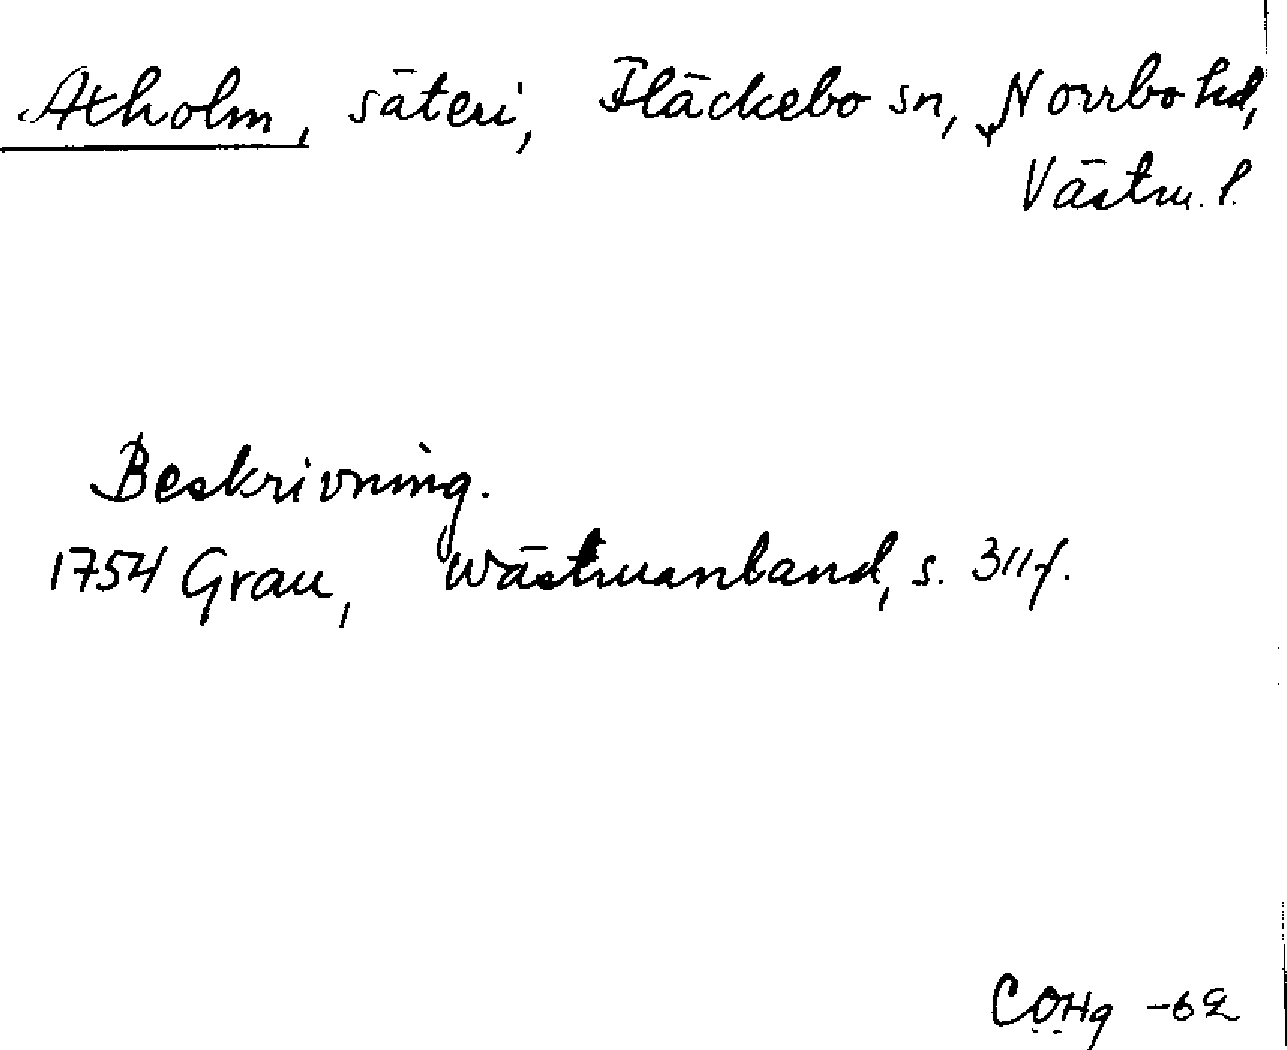 Axholm, säteri, Fläckebo sn, Norrbo hd,
Västm. l.
Beskrivning.
1754 Grau, Wästmanland, s. 311f.
COHg -62